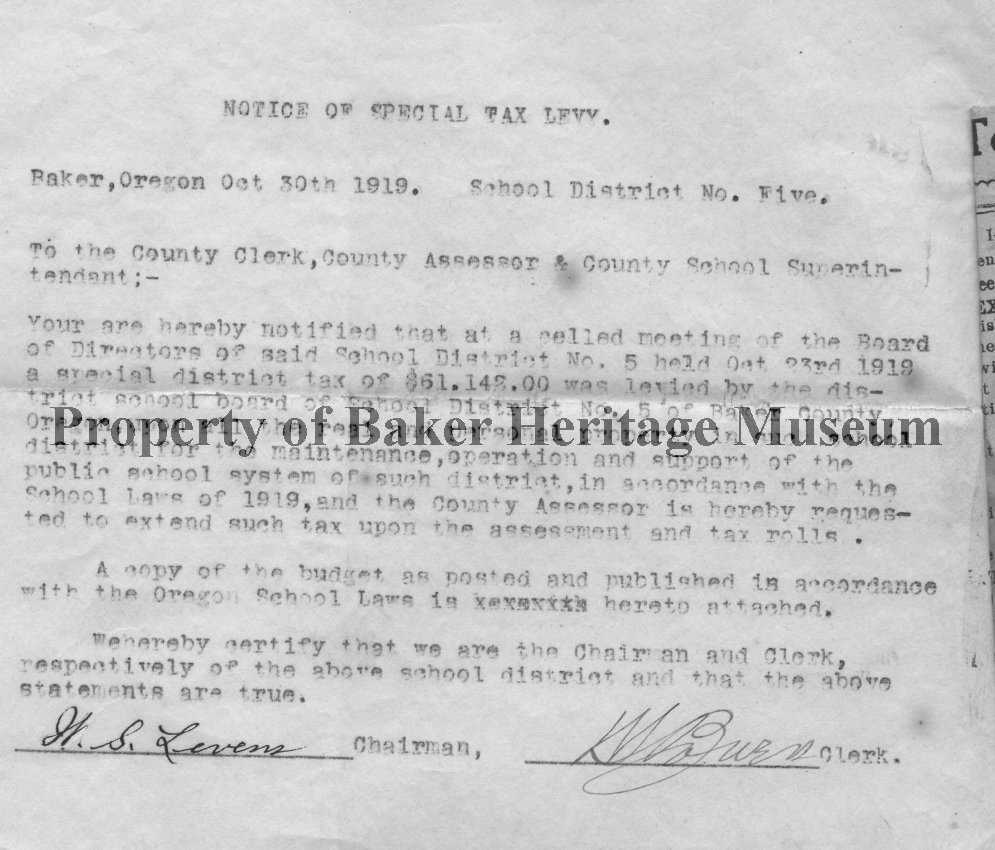 NOTICE OF SPECIAL TAX LEVY.
Baker,Oregon Oct 30th 1919. School District No. Five.
To the County Clerk,County Assessor & County School Superin-
tendant;-
Your are hereby notified that at a called meeting of the Board
of Directors of said School District No. 5 held Oct 23rd 1919
a special district tax of $61.142.00 was levied by the dis-
trict school board of School District No. 5 of Baker County
Property of Baker Heritage Museum
Oregon,upon all the real and personal property in such school
district for the maintenance,operation and support of the
public school system of such district,in accordance with the
School Laws of 1919,and the County Assessor is hereby reques-
ted to extend such tax upon the assessment and tax rolls .
A copy of the budget as posted and published in accordance
with the Oregon School Laws is hereto attached.
Wehereby certify that we are the Chairman and Clerk,
respectively of the above school district and that the above
statements are true.
W. S. Levens Chairman, Clerk.